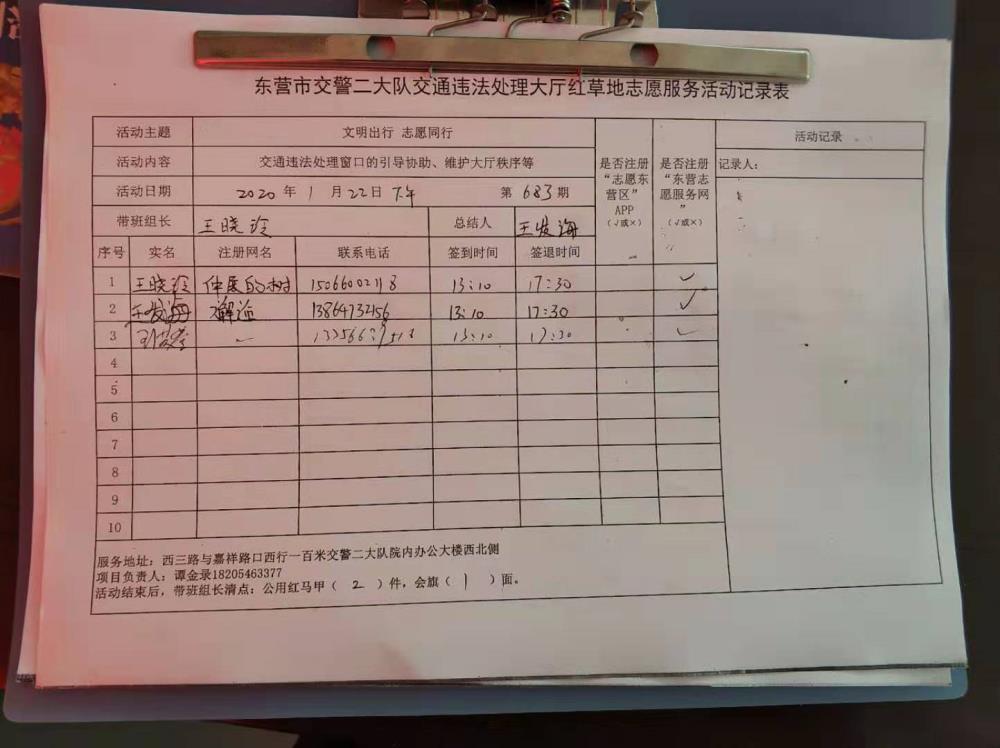 东营市交警二大队交通违法处理大厅红草地志愿服务活动记录表
活动主题 文明出行 志愿同行 活动记录
活动内容 交通违法处理窗口的引导协助、维护大厅秩序等 是否注册“志愿东营区”APP（√或×） 是否注册“东营志愿服务网”（√或×） 记录人：
活动日期 2020 年 1 月 22 日 下午 第 683 期
带班组长 王晓玲 总结人 王发海
序号 实名 注册网名 联系电话 签到时间 签退时间
1 王晓玲 伸展的树 15066002118 13:10 17:30 ✓
2 王发海 13864732456 13:10 17:30 ✓
3 13:10 17:30 ✓
4
5
6
7
8
9
10
服务地址：西三路与嘉祥路口西行一百米交警二大队院内办公大楼西北侧
项目负责人：谭金录18205463377
活动结束后，带班组长清点：公用红马甲（ 2 ）件，会旗（ 1 ）面。